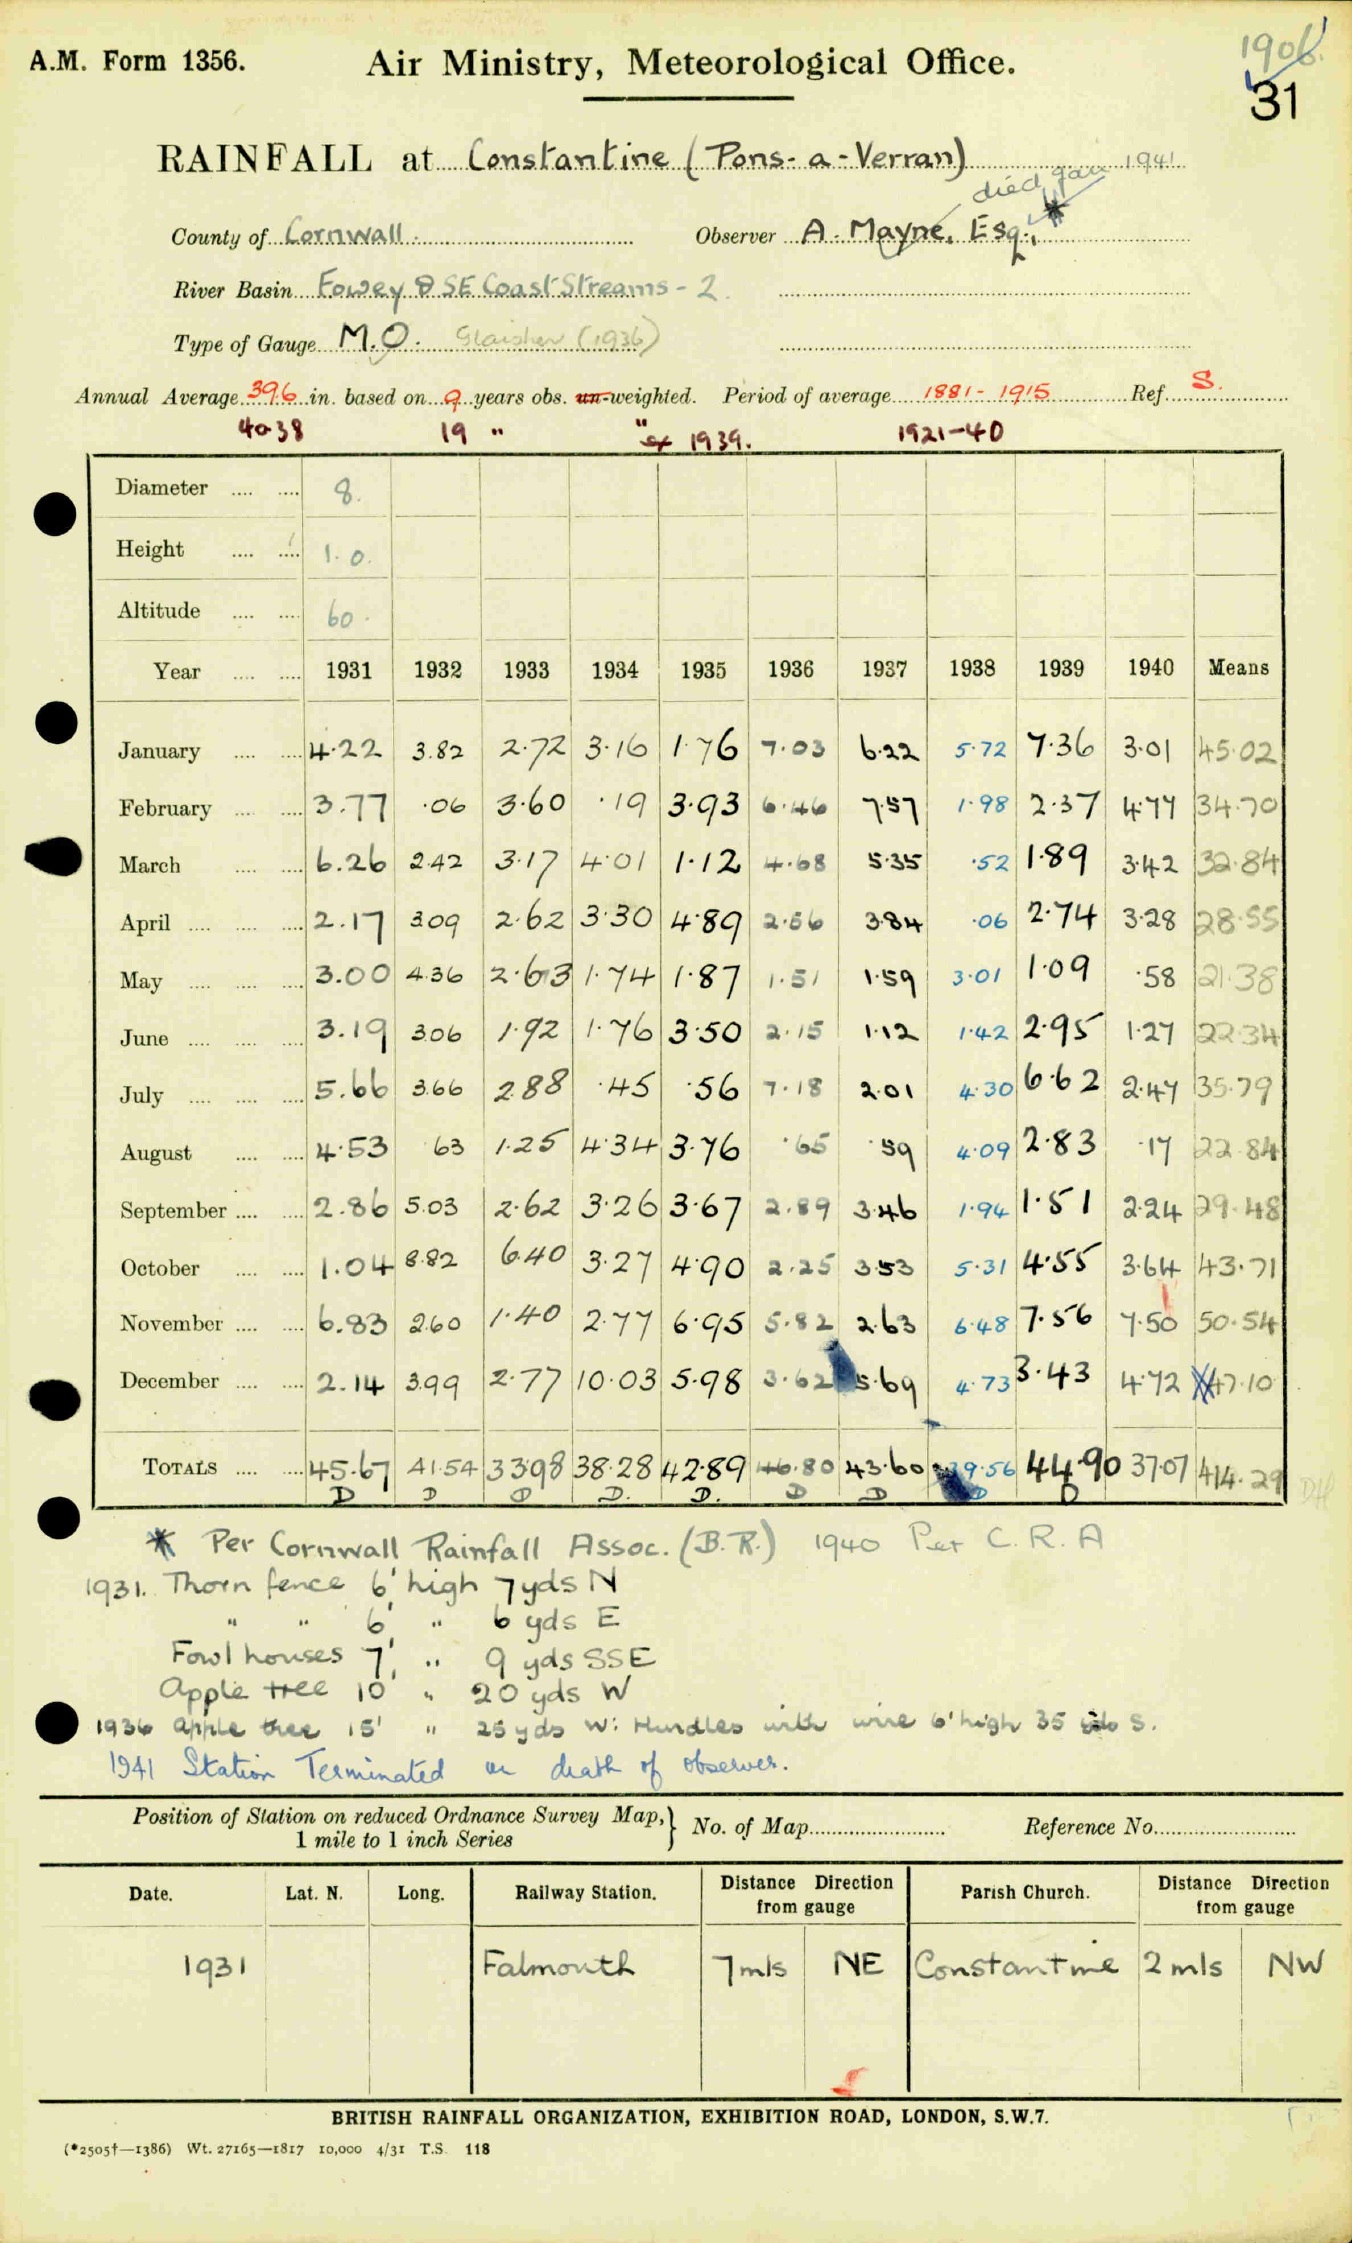 A.M. Form 1356. Air Ministry, Meteorological Office. 1906
31
RAINFALL at Constantine (Pons-a-Verran) 1941
died
County of Cornwall. Observer A. Mayne, Esq., *
River Basin Fowey & SE Coast Streams - 2.
Type of Gauge M.O. Glaisher (1936)
Annual Average 39.6 in. based on 9 years obs. un-weighted. Period of average 1881-1915 Ref. S.
40.38 19 " " ex 1939. 1921-40
Diameter .... .... 8.
Height .... .... 1.0.
Altitude .... .... 60.
Year .... .... 1931 1932 1933 1934 1935 1936 1937 1938 1939 1940 Means
January .... .... 4.22 3.82 2.72 3.16 1.76 7.03 6.22 5.72 7.36 3.01 45.02
February .... .... 3.77 .06 3.60 .19 3.93 6.46 7.57 1.98 2.37 4.77 34.70
March .... .... 6.26 2.42 3.17 4.01 1.12 4.68 5.35 .52 1.89 3.42 32.84
April .... .... .... 2.17 3.09 2.62 3.30 4.89 2.56 3.84 .06 2.74 3.28 28.55
May .... .... .... 3.00 4.36 2.63 1.74 1.87 1.51 1.59 3.01 1.09 .58 21.38
June .... .... .... 3.19 3.06 1.92 1.76 3.50 2.15 1.12 1.42 2.95 1.27 22.34
July .... .... .... 5.66 3.66 2.88 .45 .56 7.18 2.01 4.30 6.62 2.47 35.79
August .... .... 4.53 .63 1.25 4.34 3.76 .65 .59 4.09 2.83 .17 22.84
September .... .... 2.86 5.03 2.62 3.26 3.67 2.89 3.46 1.94 1.51 2.24 29.48
October .... .... 1.04 8.82 6.40 3.27 4.90 2.25 3.53 5.31 4.55 3.64 43.71
November .... .... 6.83 2.60 1.40 2.77 6.95 5.82 2.63 6.48 7.56 7.50 50.54
December .... .... 2.14 3.99 2.77 10.03 5.98 3.62 5.69 4.73 3.43 4.72 47.10
TOTALS .... .... 45.67 41.54 33.98 38.28 42.89 46.80 43.60 39.56 44.90 37.07 414.29
D D D D. D. D D D D
* Per Cornwall Rainfall Assoc. (B.R.) 1940 Per C.R.A
1931. Thorn fence 6' high 7 yds N
" " 6' " 6 yds E
Fowl houses 7' " 9 yds SSE
Apple tree 10' " 20 yds W
1936 apple tree 15' " 25 yds W: Hurdles with wire 6' high 35 yds S.
1941 Station Terminated on death of observer.
Position of Station on reduced Ordnance Survey Map, 1 mile to 1 inch Series } No. of Map........ Reference No........
Date. Lat. N. Long. Railway Station. Distance Direction from gauge Parish Church. Distance Direction from gauge
1931 Falmouth 7 mls NE Constantine 2 mls NW
BRITISH RAINFALL ORGANIZATION, EXHIBITION ROAD, LONDON, S.W.7.
(*2505†—1386) Wt. 27165—1817 10,000 4/31 T.S. 118